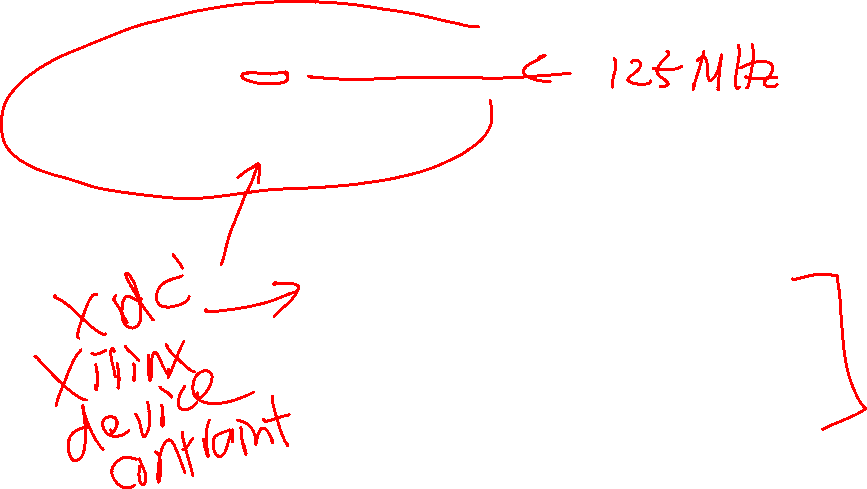 125 MHz
xdc
xilinx
device
contraint